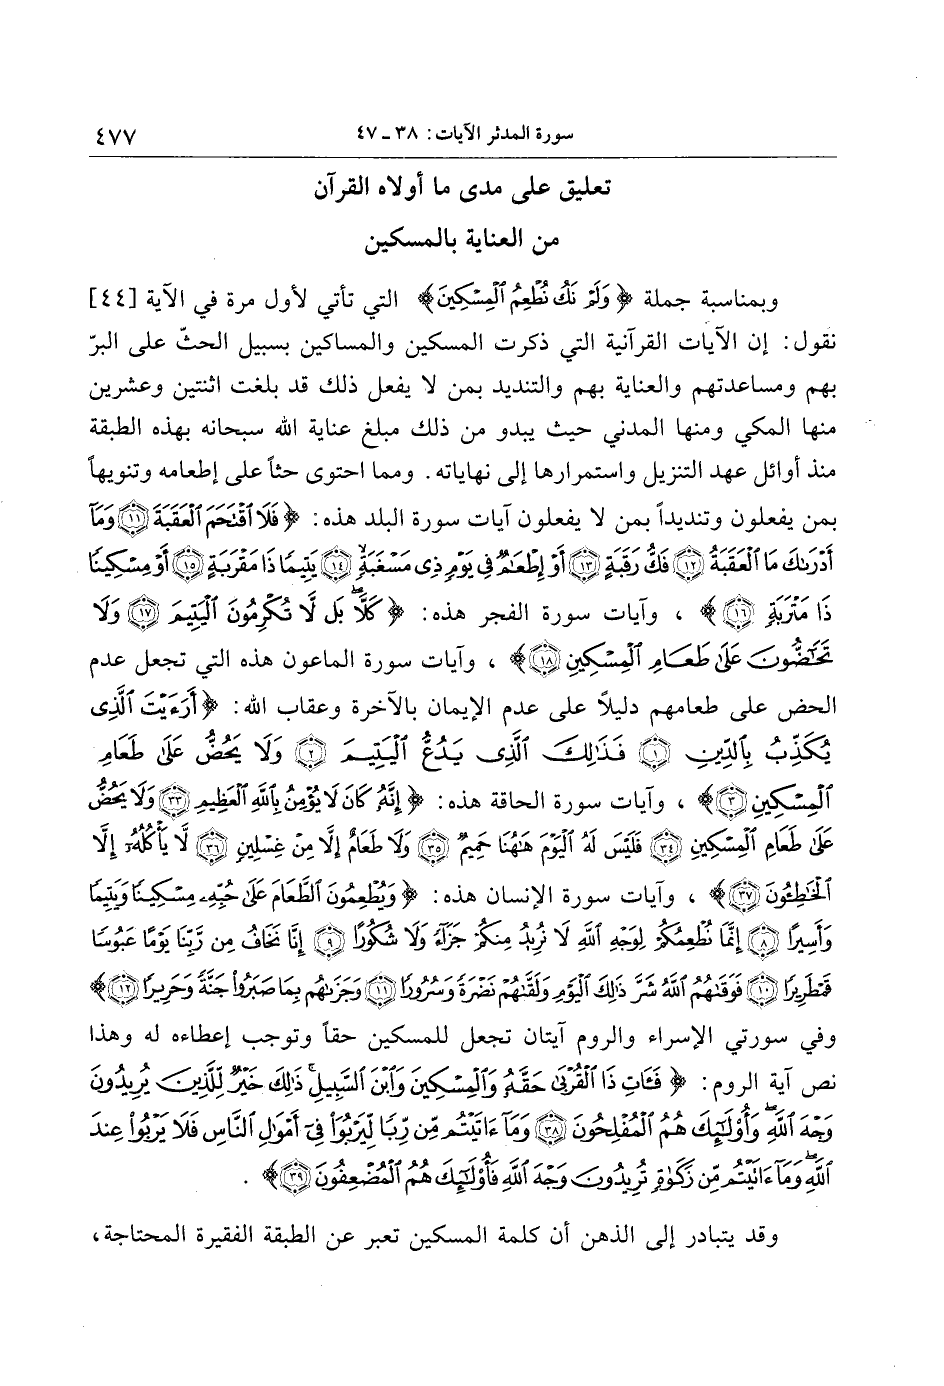 سورة المدثر الآيات: ٣٨ ـ ٤٧
٤٧٧
تعليق على مدى ما أولاه القرآن
من العناية بالمسكين
وبمناسبة جملة ﴿ وَلَمْ نَكُ نُطْعِمُ ٱلْمِسْكِينَ﴾ التي تأتي لأول مرة في الآية [٤٤]
نقول: إن الآيات القرآنية التي ذكرت المسكين والمساكين بسبيل الحثّ على البرّ
بهم ومساعدتهم والعناية بهم والتنديد بمن لا يفعل ذلك قد بلغت اثنتين وعشرين
منها المكي ومنها المدني حيث يبدو من ذلك مبلغ عناية الله سبحانه بهذه الطبقة
منذ أوائل عهد التنزيل واستمرارها إلى نهاياته. ومما احتوى حثاً على إطعامه وتنويهاً
بمن يفعلون وتنديداً بمن لا يفعلون آيات سورة البلد هذه: ﴿ فَلَا ٱقْتَحَمَ ٱلْعَقَبَةَ ﴿١١﴾ وَمَآ
أَدْرَىٰكَ مَا ٱلْعَقَبَةُ ﴿١٢﴾ فَكُّ رَقَبَةٍ ﴿١٣﴾ أَوْ إِطْعَٰمٌ فِى يَوْمٍ ذِى مَسْغَبَةٍ ﴿١٤﴾ يَتِيمًا ذَا مَقْرَبَةٍ ﴿١٥﴾ أَوْ مِسْكِينًا
ذَا مَتْرَبَةٍ ﴿١٦﴾﴾ ، وآيات سورة الفجر هذه: ﴿ كَلَّا ۖ بَل لَّا تُكْرِمُونَ ٱلْيَتِيمَ ﴿١٧﴾ وَلَا
تَحَٰٓضُّونَ عَلَىٰ طَعَامِ ٱلْمِسْكِينِ ﴿١٨﴾﴾ ، وآيات سورة الماعون هذه التي تجعل عدم
الحض على طعامهم دليلاً على عدم الإيمان بالآخرة وعقاب الله: ﴿ أَرَءَيْتَ ٱلَّذِى
يُكَذِّبُ بِٱلدِّينِ ﴿١﴾ فَذَٰلِكَ ٱلَّذِى يَدُعُّ ٱلْيَتِيمَ ﴿٢﴾ وَلَا يَحُضُّ عَلَىٰ طَعَامِ
ٱلْمِسْكِينِ ﴿٣﴾﴾ ، وآيات سورة الحاقة هذه: ﴿ إِنَّهُۥ كَانَ لَا يُؤْمِنُ بِٱللَّهِ ٱلْعَظِيمِ ﴿٣٣﴾ وَلَا يَحُضُّ
عَلَىٰ طَعَامِ ٱلْمِسْكِينِ ﴿٣٤﴾ فَلَيْسَ لَهُ ٱلْيَوْمَ هَٰهُنَا حَمِيمٌ ﴿٣٥﴾ وَلَا طَعَامٌ إِلَّا مِنْ غِسْلِينٍ ﴿٣٦﴾ لَّا يَأْكُلُهُۥٓ إِلَّا
ٱلْخَٰطِـُٔونَ ﴿٣٧﴾﴾ ، وآيات سورة الإنسان هذه: ﴿ وَيُطْعِمُونَ ٱلطَّعَامَ عَلَىٰ حُبِّهِۦ مِسْكِينًا وَيَتِيمًا
وَأَسِيرًا ﴿٨﴾ إِنَّمَا نُطْعِمُكُمْ لِوَجْهِ ٱللَّهِ لَا نُرِيدُ مِنكُمْ جَزَآءً وَلَا شُكُورًا ﴿٩﴾ إِنَّا نَخَافُ مِن رَّبِّنَا يَوْمًا عَبُوسًا
قَمْطَرِيرًا ﴿١٠﴾ فَوَقَىٰهُمُ ٱللَّهُ شَرَّ ذَٰلِكَ ٱلْيَوْمِ وَلَقَّىٰهُمْ نَضْرَةً وَسُرُورًا ﴿١١﴾ وَجَزَىٰهُم بِمَا صَبَرُوا۟ جَنَّةً وَحَرِيرًا ﴿١٢﴾﴾
وفي سورتي الإسراء والروم آيتان تجعل للمسكين حقاً وتوجب إعطاءه له وهذا
نص آية الروم: ﴿ فَـَٔاتِ ذَا ٱلْقُرْبَىٰ حَقَّهُۥ وَٱلْمِسْكِينَ وَٱبْنَ ٱلسَّبِيلِ ۚ ذَٰلِكَ خَيْرٌ لِّلَّذِينَ يُرِيدُونَ
وَجْهَ ٱللَّهِ ۖ وَأُو۟لَٰٓئِكَ هُمُ ٱلْمُفْلِحُونَ ﴿٣٨﴾ وَمَآ ءَاتَيْتُم مِّن رِّبًا لِّيَرْبُوَا۟ فِىٓ أَمْوَٰلِ ٱلنَّاسِ فَلَا يَرْبُوا۟ عِندَ
ٱللَّهِ ۖ وَمَآ ءَاتَيْتُم مِّن زَكَوٰةٍ تُرِيدُونَ وَجْهَ ٱللَّهِ فَأُو۟لَٰٓئِكَ هُمُ ٱلْمُضْعِفُونَ ﴿٣٩﴾﴾ .
وقد يتبادر إلى الذهن أن كلمة المسكين تعبر عن الطبقة الفقيرة المحتاجة،